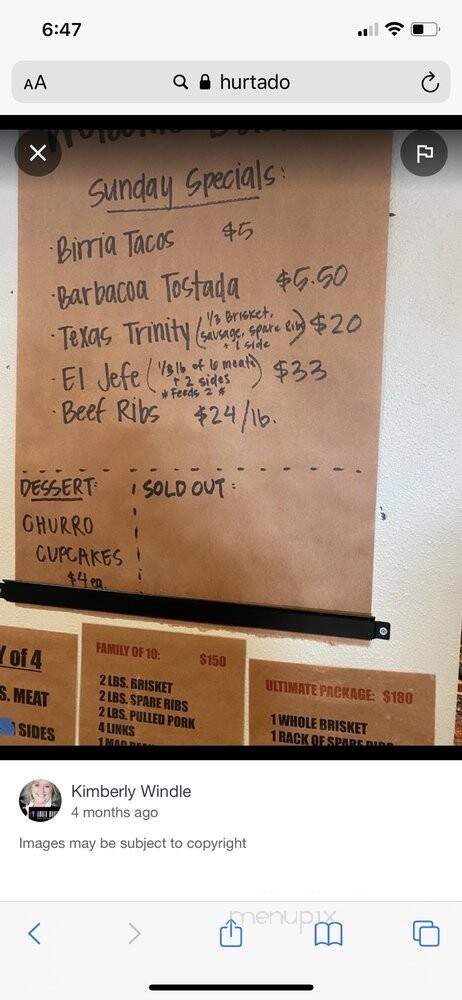 6:47
AA
hurtado
Sunday Specials:
· Birria Tacos $5
· Barbacoa Tostada $5.50
· Texas Trinity (1/3 Brisket, sausage, spare rib + 1 side) $20
· El Jefe (1/3 lb of 6 meats + 2 sides * Feeds 2 *) $33
· Beef Ribs $24/lb.
DESSERT:
SOLD OUT:
CHURRO
CUPCAKES
$4 ea.
of 4
S. MEAT
SIDES
FAMILY OF 10: $150
2 LBS. BRISKET
2 LBS. SPARE RIBS
2 LBS. PULLED PORK
4 LINKS
ULTIMATE PACKAGE: $180
1 WHOLE BRISKET
1 RACK OF SPARE RIBS
Kimberly Windle
4 months ago
Images may be subject to copyright
menupix